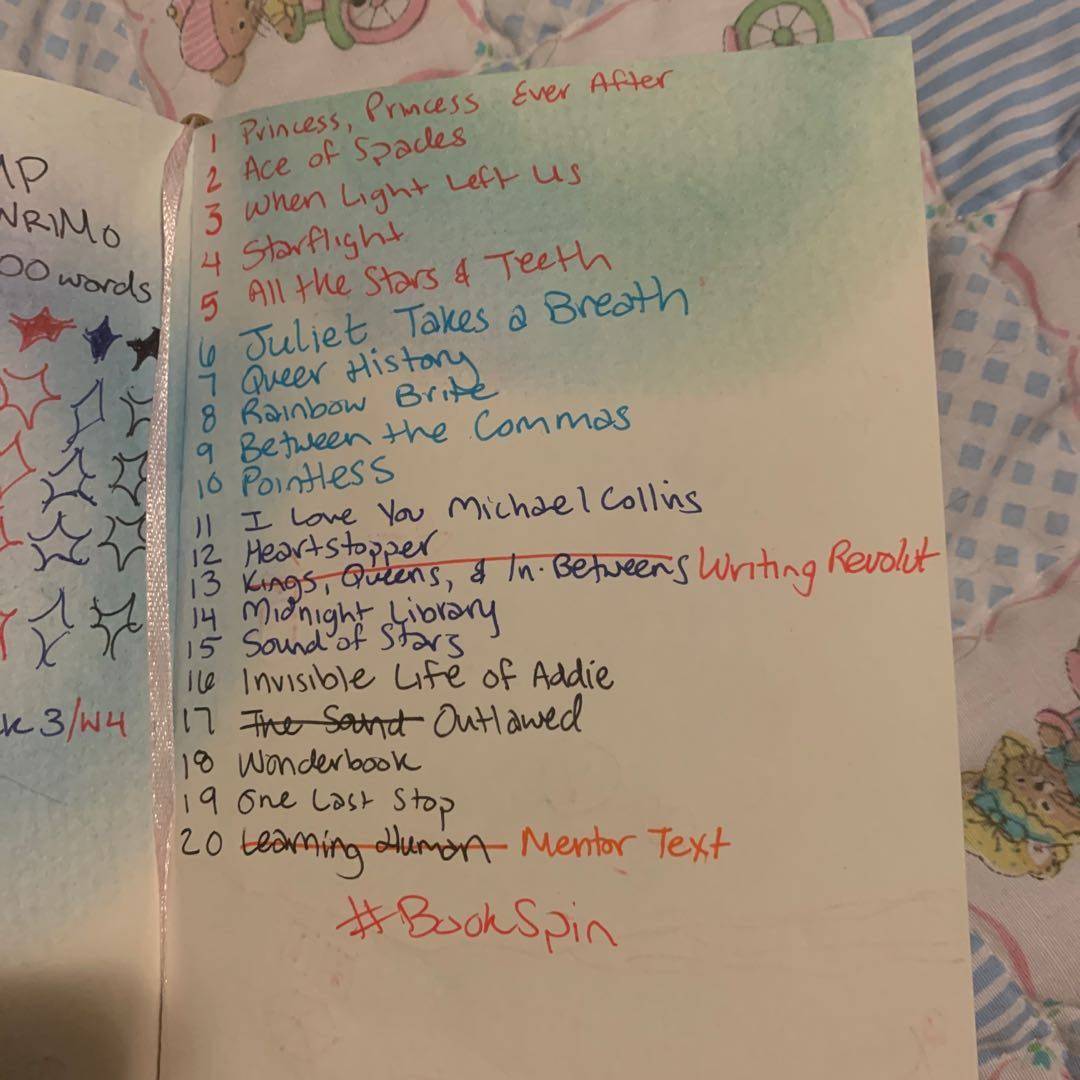 MP
NRIMO
00 words
k 3/W4
1 Princess, Princess Ever After
2 Ace of Spades
3 When Light Left Us
4 Starflight
5 All the Stars & Teeth
6 Juliet Takes a Breath
7 Queer History
8 Rainbow Brite
9 Between the Commas
10 Pointless
11 I Love You Michael Collins
12 Heartstopper
13 Kings, Queens, & In-Betweens Writing Revolut
14 Midnight Library
15 Sound of Stars
16 Invisible Life of Addie
17 The Sand Outlawed
18 Wonderbook
19 One Last Stop
20 Learning Human Mentor Text
#BookSpin